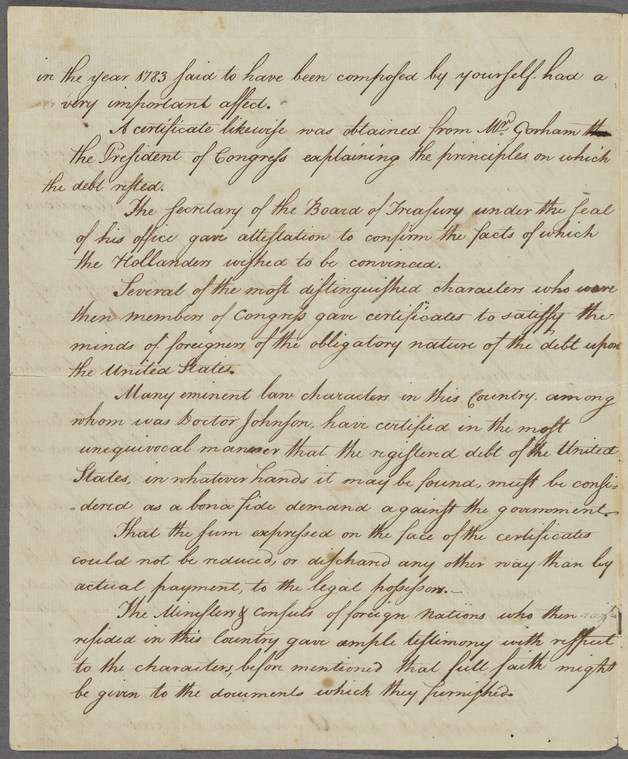 in the year 1783 said to have been composed by yourself. had a
very important affect.
A certificate likewise was obtained from Mr. Gorham the
the President of Congress explaining the principles on which
the debt rested.
The Secretary of the Board of Treasury under the seal
of his office gave attestation to confirm the facts of which
the Hollanders wished to be convinced.
Several of the most distinguished characters who were
then members of Congress gave certificates to satisfy the
minds of foreigners of the obligatory nature of the debt upon
the United States.
Many eminent law characters in this Country, among
whom was Doctor Johnson, have certified in the most
unequivocal manner that the registered debt of the United
States, in whatever hands it may be found, must be consi-
-dered as a bona fide demand against the government.
That the sum expressed on the face of the certificates
could not be reduced, or discharged any other way than by
actual payment, to the legal possessors.
The Ministers & Consuls of foreign nations who then
resided in this Country gave ample testimony with respect
to the characters, before mentioned that full faith might
be given to the documents which they furnished.